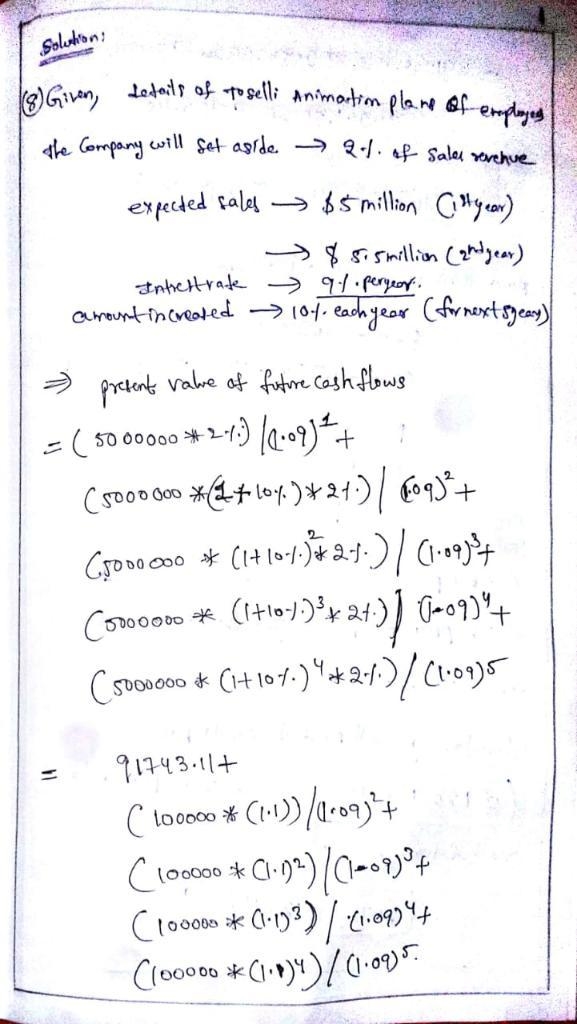 Solution:
(8) Given, details of Toselli Animation plans of employed
the Company will set aside → 2%. of sales revenue
expected sales → $5 million (1st year)
→ $ 5.5 million (2nd year)
Interest rate → 9%. peryear.
amount increated → 10%. each year (for next 5 years)
⇒ present value of future cash flows
= (5000000 * 2%) / (1.09)^1 +
(5000000 * (1+10%) * 2%) / (1.09)^2 +
(5000000 * (1+10%)^2 * 2%) / (1.09)^3 +
(5000000 * (1+10%)^3 * 2%) / (1.09)^4 +
(5000000 * (1+10%)^4 * 2%) / (1.09)^5
= 91743.11 +
(100000 * (1.1)) / (1.09)^2 +
(100000 * (1.1)^2) / (1.09)^3 +
(100000 * (1.1)^3) / (1.09)^4 +
(100000 * (1.1)^4) / (1.09)^5.